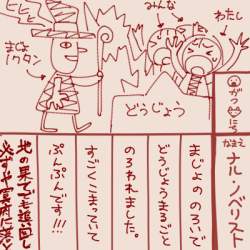 がつ にち
なまえ
ナル・ノベリスト
わたし
みんな
どうじょう
ヒヒヒ
まじょ
まじょののろいで
どうじょうまるごと
のろわれました。
すごくこまっていて
ぷんぷんです!!!
地の果てまでも追回し
必ずや冥府に